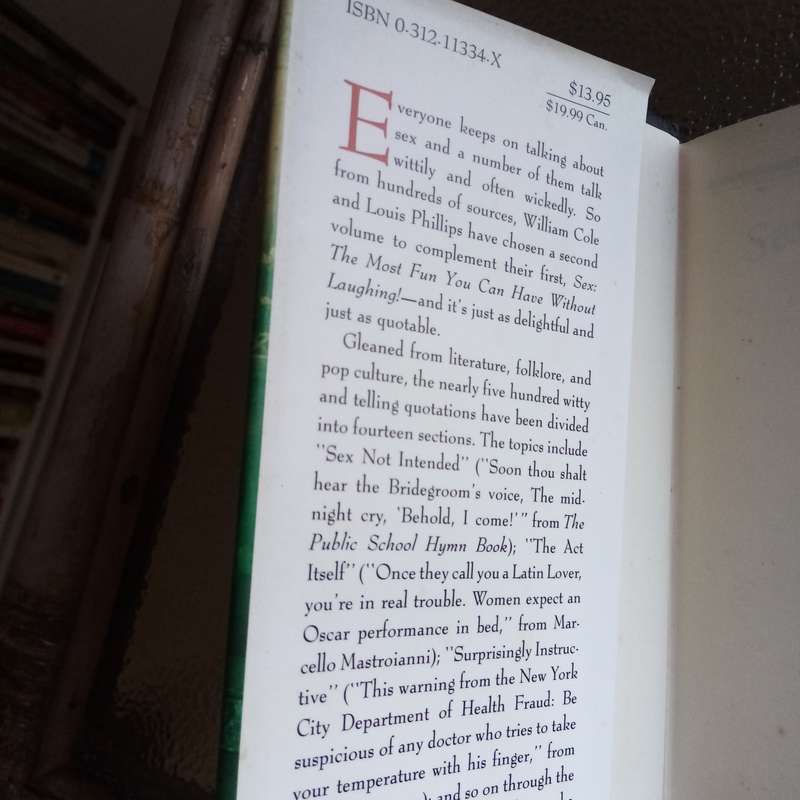 ISBN 0-312-11334-X
$13.95
$19.99 Can.
Everyone keeps on talking about
sex and a number of them talk
wittily and often wickedly. So
from hundreds of sources, William Cole
and Louis Phillips have chosen a second
volume to complement their first, Sex:
The Most Fun You Can Have Without
Laughing!—and it's just as delightful and
just as quotable.
Gleaned from literature, folklore, and
pop culture, the nearly five hundred witty
and telling quotations have been divided
into fourteen sections. The topics include
"Sex Not Intended" ("Soon thou shalt
hear the Bridegroom's voice, The mid-
night cry, 'Behold, I come!'" from The
Public School Hymn Book); "The Act
Itself" ("Once they call you a Latin Lover,
you're in real trouble. Women expect an
Oscar performance in bed," from Mar-
cello Mastroianni); "Surprisingly Instruc-
tive" ("This warning from the New York
City Department of Health Fraud: Be
suspicious of any doctor who tries to take
your temperature with his finger," from
and so on through the